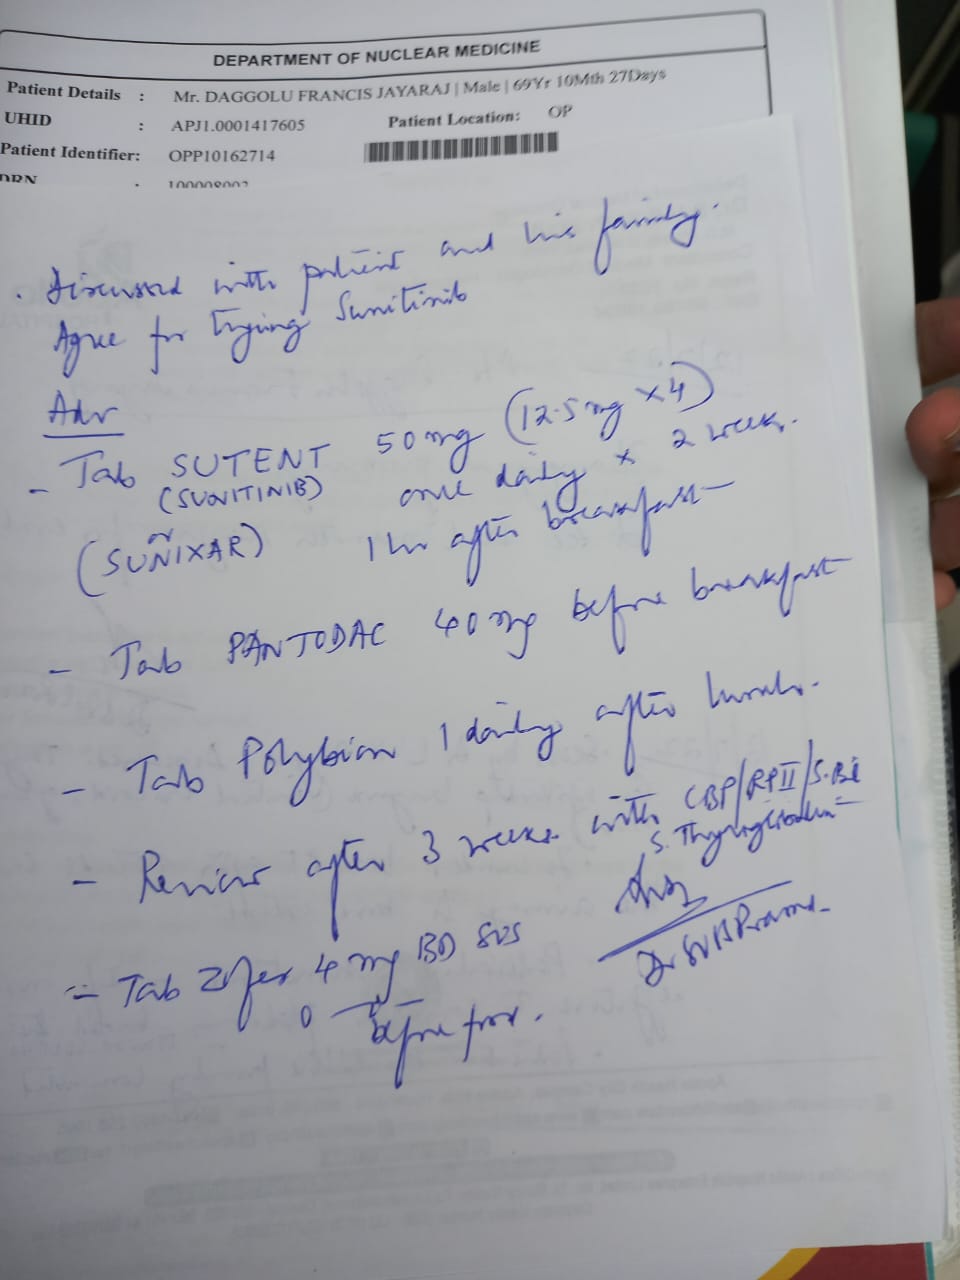 DEPARTMENT OF NUCLEAR MEDICINE
Patient Details : Mr. DAGGOLU FRANCIS JAYARAJ | Male | 69Yr 10Mth 27Days
UHID : APJ1.0001417605 Patient Location: OP
Patient Identifier: OPP10162714
. Discussed with patient and his family.
Agree for trying Sunitinib
Adv
- Tab SUTENT 50 mg (12.5 mg x 4)
(SUNITINIB) once daily x 2 weeks.
(SUNIXAR) 1 hr after breakfast
- Tab PANTODAC 40 mg before breakfast
- Tab Polybion 1 daily after lunch.
- Review after 3 weeks with CBP/RPII/S.Bi
S. Thyroglobulin
- Tab Zofer 4 mg BD SOS
before food.